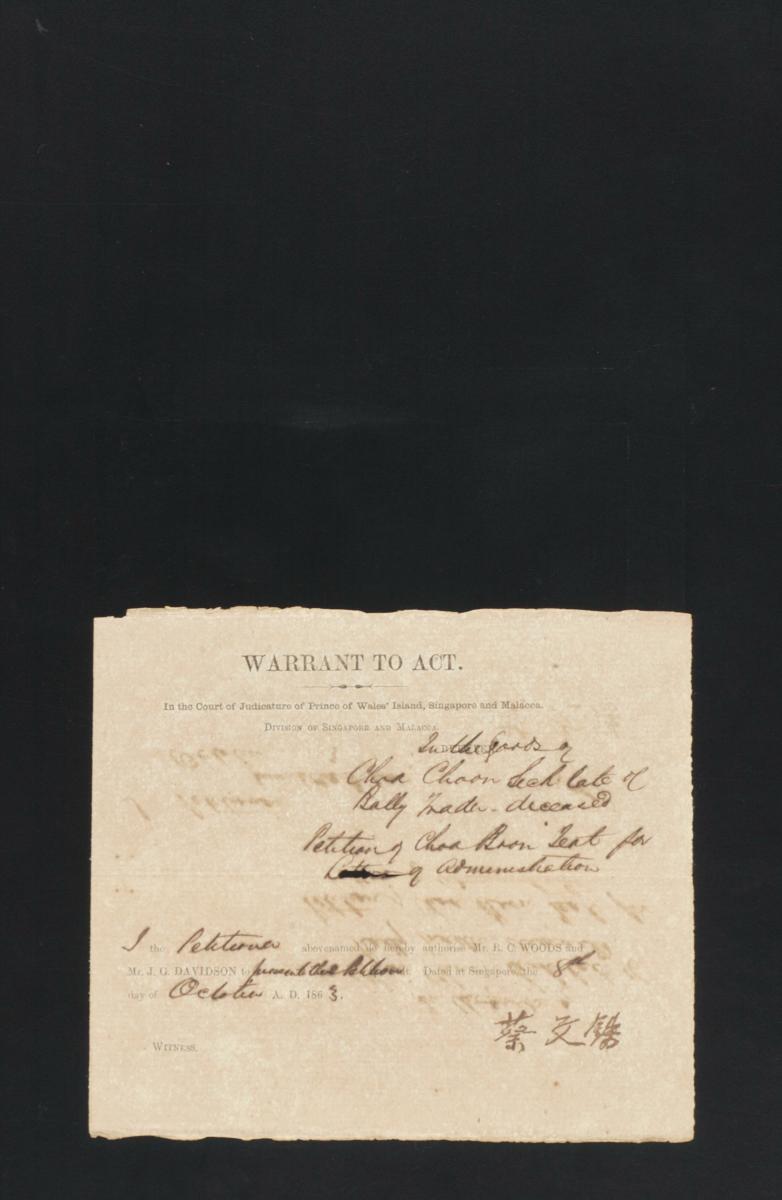 WARRANT TO ACT.
In the Court of Judicature of Prince of Wales' Island, Singapore and Malacca.
Division of Singapore and Malacca.
In the Goods of
Choa Choon Seck late of
Bally Trader - deceased
Petition of Choa Boon Teat for
Letters of Administration
I the Petitioner abovenamed do hereby authorise Mr. R. C. WOODS and
Mr. J. G. DAVIDSON to present this Petition Dated at Singapore the 8th
day of October A. D. 1863.
蔡文
Witness.